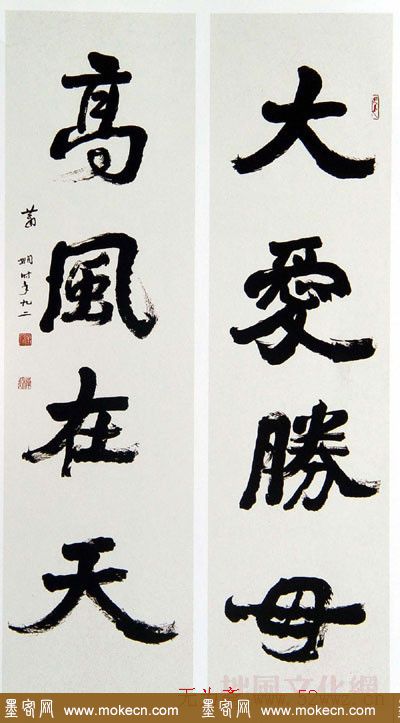 大愛勝母
高風在天
蕭嫻时年九二
墨客网 www.mokecn.com 墨客网 www.mokecn.com